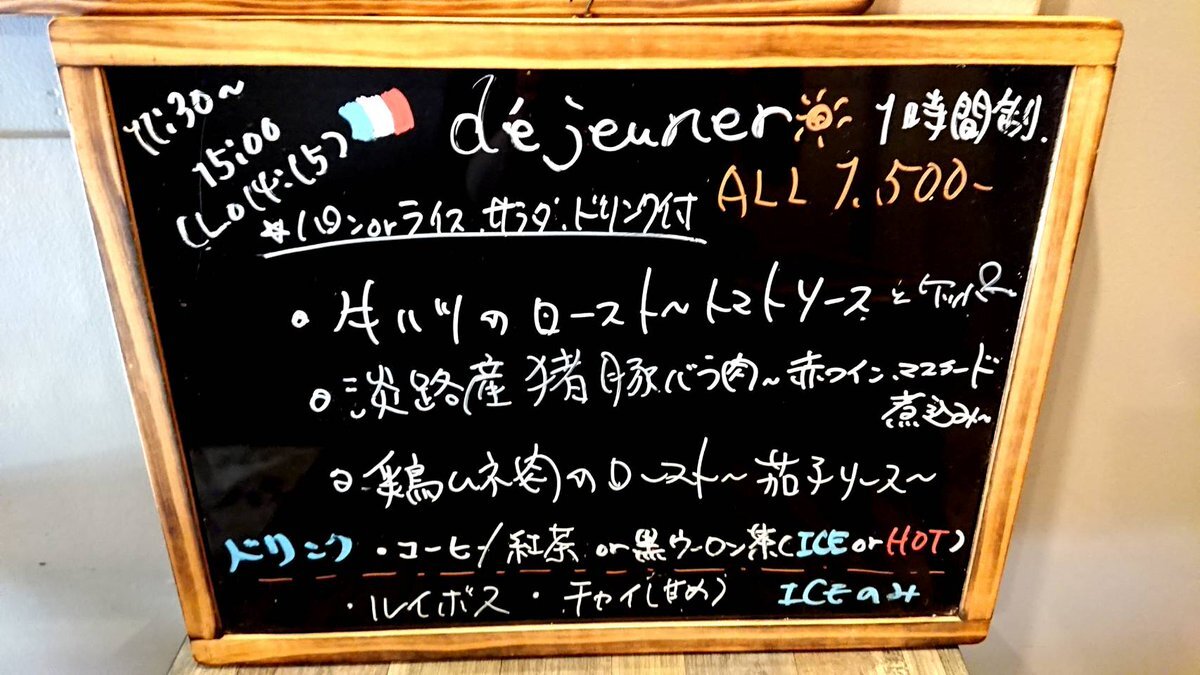 11:30〜
15:00
(L.O 14:15)
déjeuner
1時間制.
ALL 1,500-
☆パンorライス.サラダ.ドリンク付
・牛ハツのロースト〜トマトソースと
・淡路産猪豚バラ肉〜赤ワイン.マスタード
煮込み〜
・鶏ムネ肉のロースト〜茄子ソース〜
ドリンク ・コーヒー/紅茶 or 黒ウーロン茶(ICE or HOT)
・ルイボス ・チャイ(甘め) ICEのみ